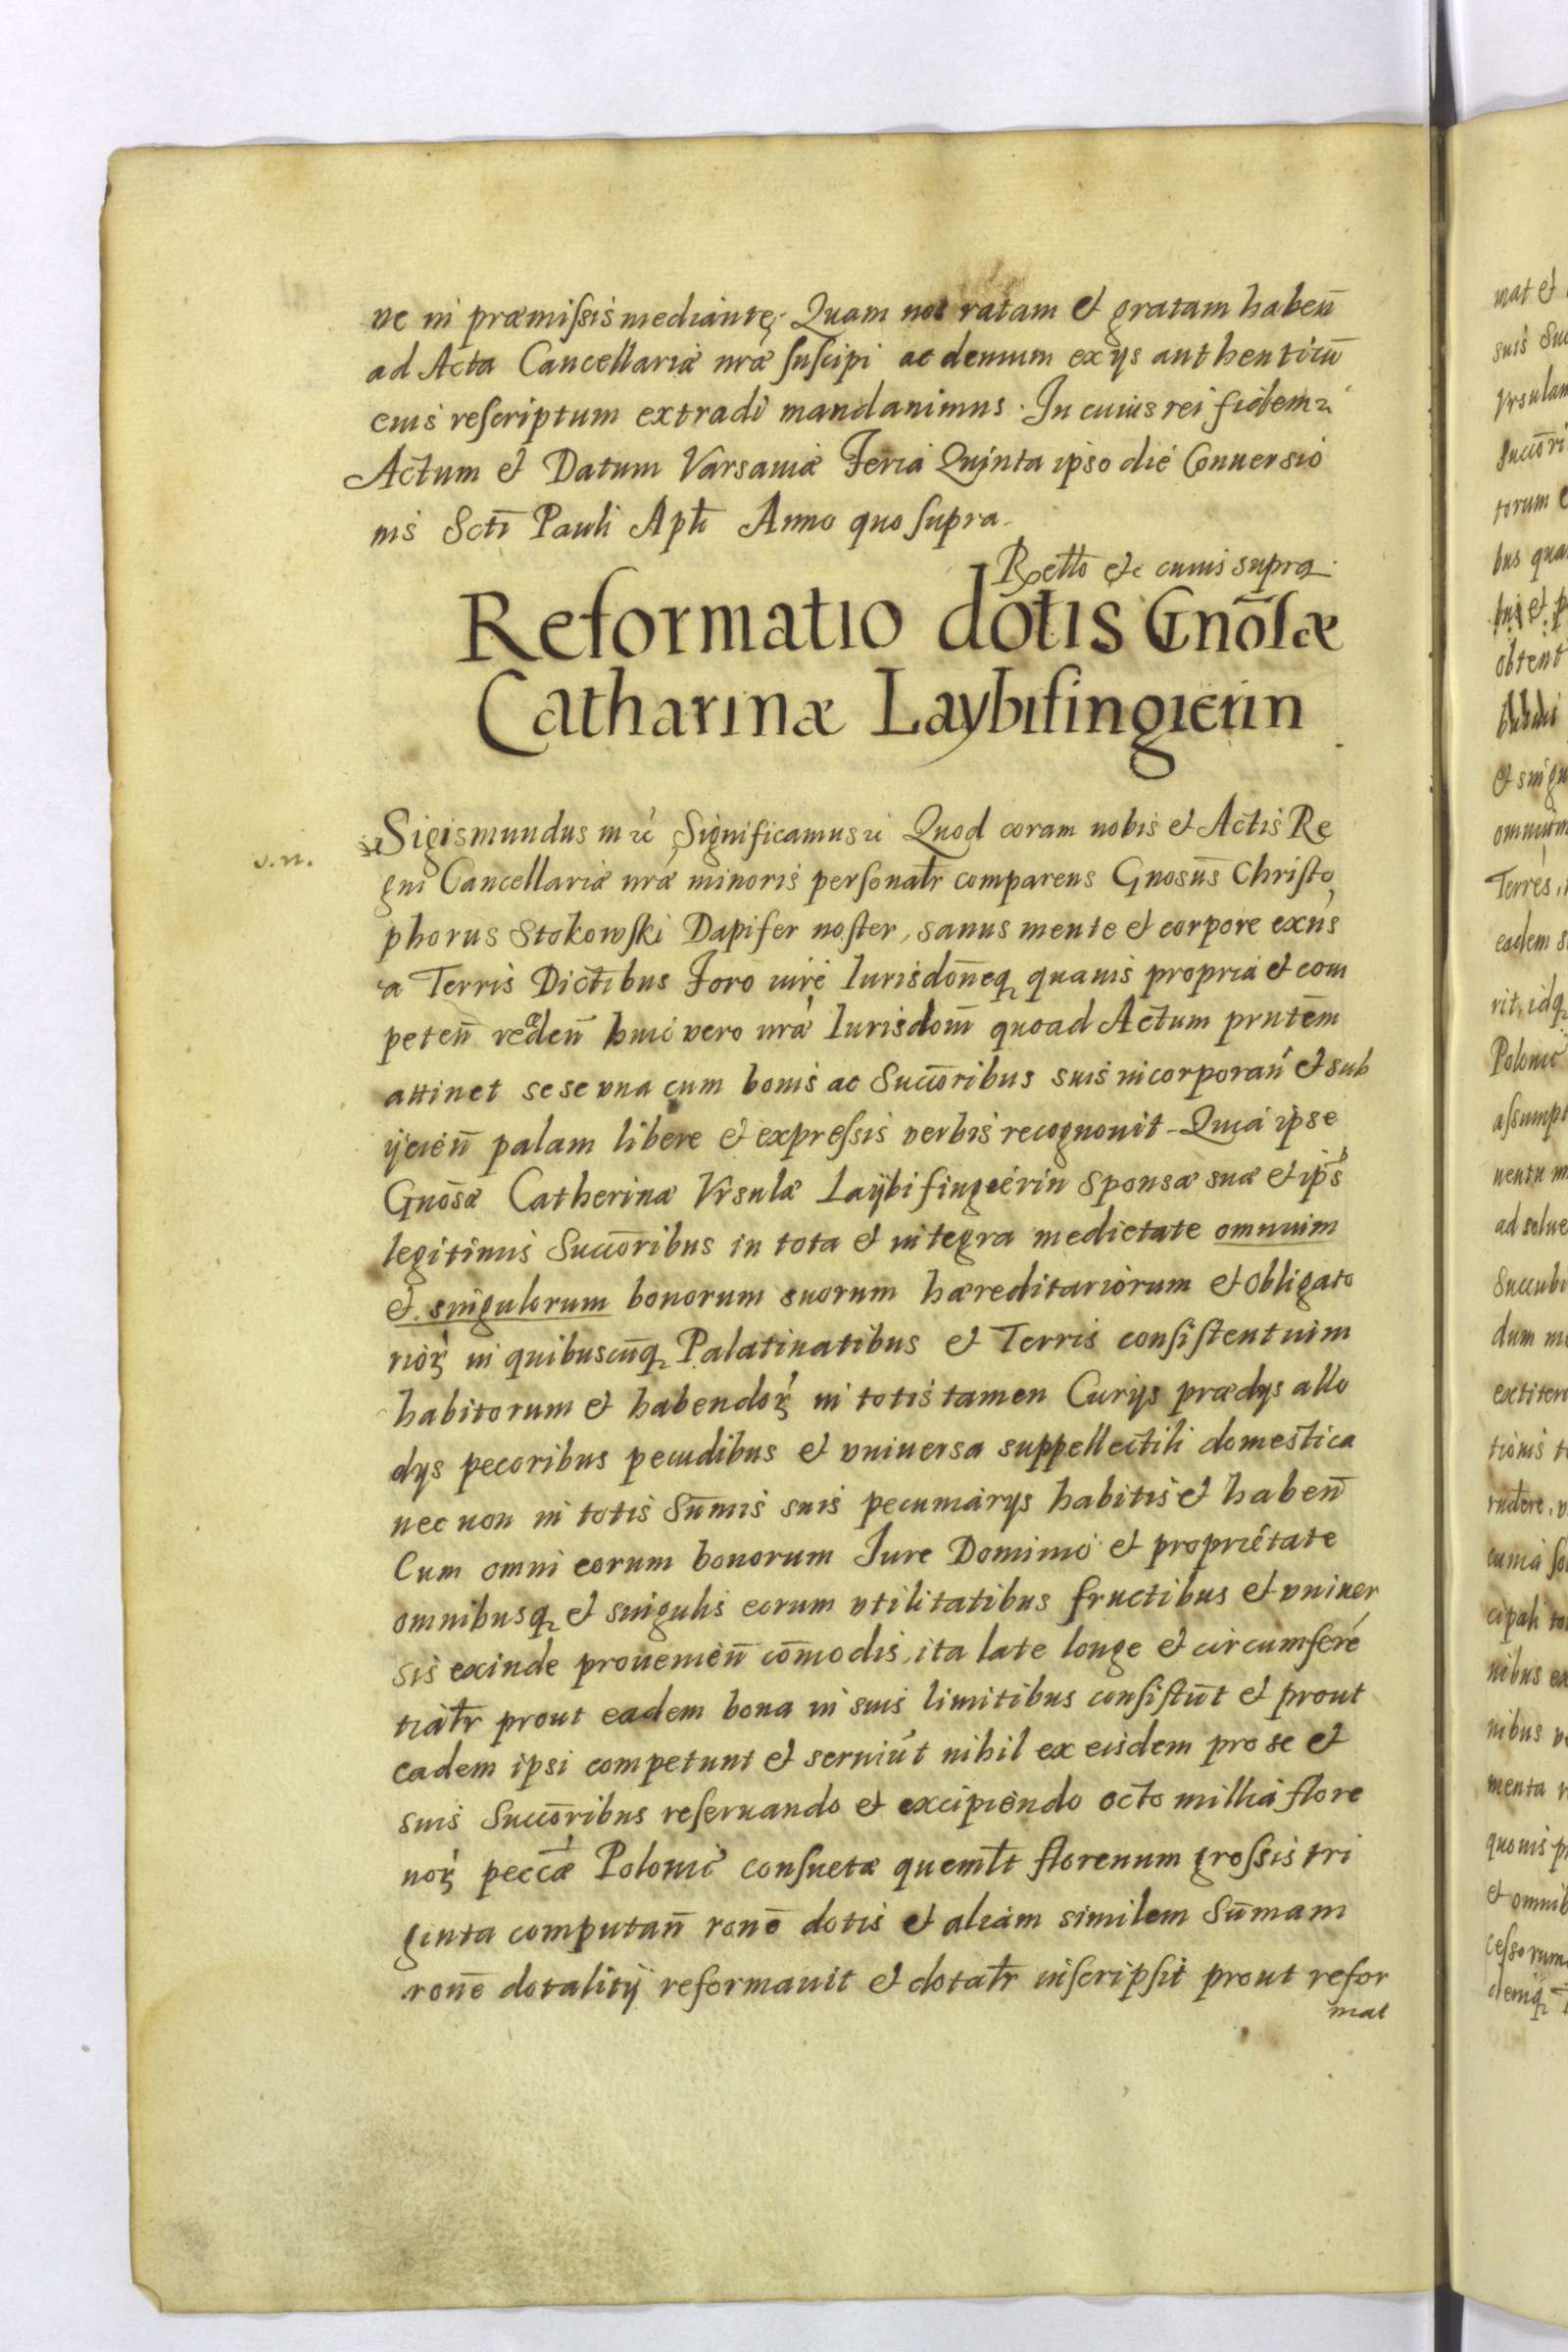 ne in præmissis mediante. Quam nos ratam et gratam habeñ
ad Acta Cancellariæ nræ suscipi ac demum ex ijs authenticū
eius rescriptum extradi mandauimus. In cuius rei fidem
Actum et Datum Varsauiæ Feria Quinta ipso die Conuersio
nis Scti Pauli Apli Anno quo supra.
Rettō etc cuius supra.
Reformatio dotis Gnōsæ
Catharinæ Laybisingierin
v. n.
Sigismundus III etc Significamus etc Quod coram nobis et Actis Re
gni Cancellariæ nræ minoris personalr comparens Gnosus Christo
phorus Stokowski Dapifer noster, sanus mente et corpore exñs
a Terris Dictibus Foro iure Iurisdōneq quauis propria et com
peteñ recedeñ huic vero nræ Iurisdōni quoad Actum prntēm
attinet sese vna cum bonis ac Succōribus suis incorporañ et sub
ijcieñ palam libere et expressis verbis recognouit. Quia ipse
Gnōsæ Catherinæ Vrsulæ Laÿbisingierin sponsæ suæ et ips
legitimis Succōribus in tota et integra medietate omnium
et singulorum bonorum suorum hæreditariorum et obligato
rioꝝ in quibuscūq Palatinatibus et Terris consistentium
habitorum et habendoꝝ in totis tamen Curijs prædijs allo
dijs pecoribus pecudibus et vniuersa suppellectili domestica
nec non in totis Sūmis suis pecuniarijs habitis et habeñ
Cum omni eorum bonorum Iure Dominio et proprietate
omnibusq et singulis eorum vtilitatibus fructibus et vniuer
sis exinde proueniēñ cōmodis, ita late longe et circumferē
tialr prout eadem bona in suis limitibus consistūt et prout
eadem ipsi competunt et seruiūt nihil ex eisdem pro se et
suis Succōribus reseruando et excipiendo octo millia flore
noꝝ peccæ Polonic consuetæ quemlt florenum grossis tri
ginta computañ ronē dotis et aliam similem Sūmam
ronē dotalitij reformauit et dotalr inscripsit prout refor
mat